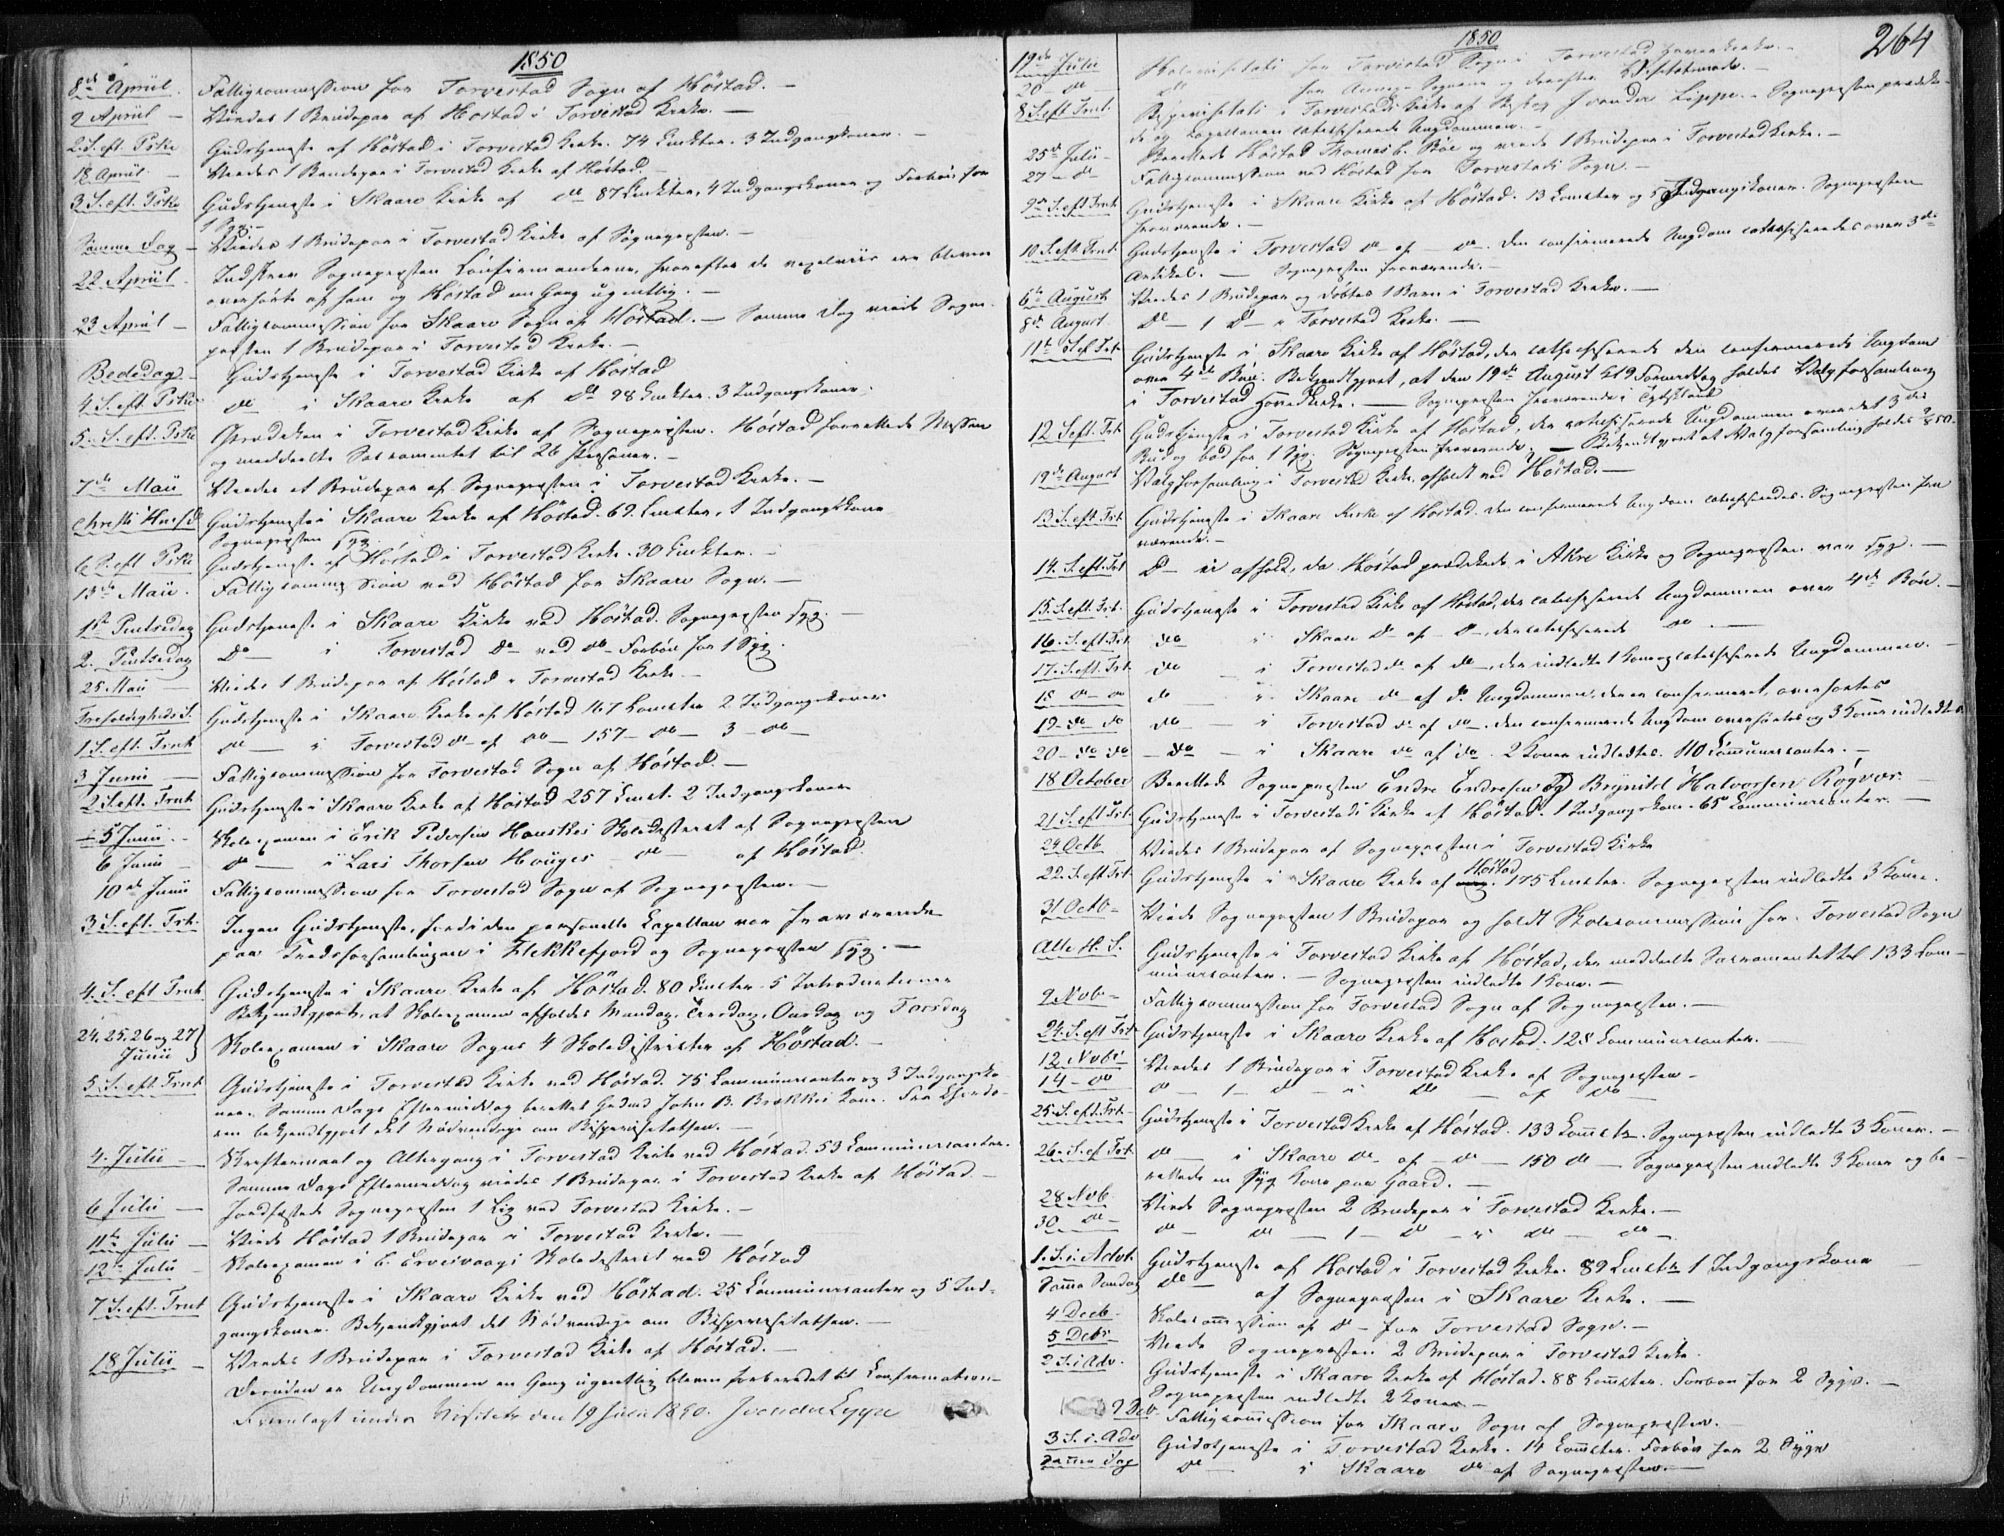 1850
8de April. Fattigcommission for Torvestad Sogn af Höstad. —
9 April — Viedes 1 Brudepar af Höstad i Torvestad Kirke. —
2. S. eft. Pske Gudstjeneste af Höstad i Torvestad Kirke. 74 Cmkter. 3 Indgangskoner. —
18 April — Viedes 1 Brudepar i Torvestad Kirke af Höstad. —
3. S. eft. Pske Gudstjeneste i Skaare Kirke af do 87 Cmkter, 4 Indgangskoner og Forbön for
1 Syg. —
Samme Dag — Viedes 1 Brudepar i Torvestad Kirke af Sognepresten. —
22 April — Indskrev Sognepresten Confirmanderne, hvorefter de vexelviis ere blevne
overhörte af ham og Höstad en Gang ugentlig. —
23 April — Fattigcommission for Skaare Sogn af Höstad. — Samme Dag viede Sogne-
presten 1 Brudepar i Torvestad Kirke. —
Bededag — Gudstjeneste i Torvestad Kirke af Höstad
4. S. eft. Pske do i Skaare Kirke af do 98 Cmkter. 3 Indgangskoner.
5. S. eft. Pske Prædiken i Torvestad Kirke af Sognepresten. Höstad forrettede Messen
og meddeelte Sacramentet til 26 Personer. —
7de Maii Viedes et Brudepar af Sognepresten i Torvestad Kirke. —
Christi Himfd. Gudstjeneste i Skaare Kirke af Höstad. 69. Cmkter, 1 Indgangskone
Sognepresten syg.
6 S. eft Pske Gudstjeneste af Höstad i Torvestad Kirke. 30 Cmkter. —
13de Maii. Fattigcommission ved Höstad for Skaare Sogn. —
1ste Pintsedag Gudstjeneste i Skaare Kirke ved Höstad. Sognepresten syg. —
2. Pintsedag Do i Torvestad Do ved do Forbön for 1 Syg.
25 Maii — Viedes 1 Brudepar af Höstad i Torvestad Kirke —
Trefoldigheds S. Gudstjeneste i Skaare Kirke af Höstad 167 Comcter 2 Indgangskoner
1 S. eft. Trnt do — i Torvestad do af do — 157 — do — 3 — do —
3 Junii — Fattigcommission for Torvestad Sogn af Höstad. —
2 S. eft. Trnt Gudstjeneste i Skaare Kirke af Höstad 257 Cmct. 2 Indgangskoner
5 Junii — Skoleexamen i Erik Pedersen Hauskes Skoledistrict af Sognepresten
6 Junii — do — i Lars Thorsen Hauges do — af Höstad.
10de Junii Fattigcommission for Torvestad Sogn af Sognepresten. —
3 S. eft. Trt. Ingen Gudstjeneste, fordi den personelle Capellan var fraværende
paa Fredsforsamlingen i Flekkefjord og Sognepresten syg. —
4. S. eft Trnt Gudstjeneste i Skaare Kirke af Höstad. 80 Cmcter 5 Introductioner
Bekjendtgjort, at Skoleexamen afholdes Mandag, Tirsdag, Onsdag og Torsdag
24. 25. 26 og 27 Junii } Skoleexamen i Skaare Sogns 4 Skoledistricter af Höstad. —
5. S. eft Trnt Gudstjeneste i Torvestad Kirke ved Höstad. 75 Communicanter og 3 Indgangsko-
ner. Samme Dags Eftermiddag berettet John B. Brækkes Kone.
bekjendtgjort det Nödvendige om Bispevisitatsen. —
4. Julii — Skriftemaal og Altergang i Torvestad Kirke ved Höstad. 53 Communicanter.
Samme Dags Eftermiddag viedes 1 Brudepar i Torvestad Kirke af Höstad. —
6 Julii — Jordfæstede Sognepresten 1 Lig ved Torvestad Kirke. —
11te Julii — Viede Höstad 1 Brudepar i Torvestad Kirke. —
12te Julii — Skoleexamen i Skoledistrict ved Höstad
7 S. eft. Trnt Gudstjeneste i Skaare Kirke ved Höstad. 25 Communicanter og 5 Ind-
gangskoner. Bekjendtgjort det Nödvendige om Bispevisitatsen. —
18 Julii — Viedes 1 Brudepar i Torvestad Kirke af Höstad. —
Desuden er Ungdommen en Gang ugentlig bleven forberedet til Confirmation.
Fremlagt under Visitats den 19 Julii 1850.
1850
264
19de Julii Skolevisitats for Torvestad Sogn i Torvestad Hovedkirke. —
20 — do — do for Sogn og derefter Visitatsmøde. —
8 S. eft Trnt. Bispevisitats i Torvestad Kirke af Sognepresten prædike-
de og Capellanen catechiserede Ungdommen. —
25de Julii — Berettede Höstad Thomas C. Böe og viede 1 Brudepar i Torvestad Kirke. —
27 — do Fattigcommission ved Höstad for Torvestads Sogn. —
9de S. eft Trnt Gudstjeneste i Skaare Kirke af Höstad. 13 Comcter og 5 Indgangskoner. Sognepresten
fraværende. —
10. S. eft. Trnt. Gudstjeneste i Torvestad do af — do. Den confirmerede Ungdom catechiseredes over 3die
Artikel. — Sognepresten fraværende. —
6te August Viedes 1 Brudepar og döbtes 1 Barn i Torvestad Kirke. —
8de August Do — 1 Do — i Torvestad Kirke. —
11te S. ef Trt Gudstjeneste i Skaare Kirke af Höstad, der catechiserede den confirmerede Ungdom
over 4de Bön. Bekjendtgjort, at den 19de August Kl 9 Formiddag holdes Valgforsamling
i Torvestad Hovedkirke. — Sognepresten fraværende i Tydskland
12 S. eft. Trt. Gudstjeneste i Torvestad Kirke af Höstad, der catechiserede Ungdommen over det 3die
Bud og bad for 1 Syg. Sognepresten fraværende. — Bekjendtgjort at Valgforsamling holdes
19de August Valgforsamling i Torvestad Kirke afholdt ved Höstad. —
13 S. eft Trt Gudstjeneste i Skaare Kirke af Höstad. Den confirmerede Ungdom catechiseredes. Sognepresten fra
værende. —
14. S. eft. Trt Do — ei afholdt, da Höstad prædikede i Akre Kirke og Sognepresten var syg. —
15. S. eft. Trt. Gudstjeneste i Torvestad Kirke af Höstad, der catechiserede Ungdommen over 4de Bön. —
16. S. eft. Trt do — i Skaare do af — do, der catechiserede do. —
17. S. eft. Trt do — i Torvestad do af do —, der indledte 1 Kone og catechiserede Ungdommen. —
18 do — do do — i Skaare do af do. Ungdommen, den er confirmeret, overhörtes
19 — do do do — i Torvestad do af do —. Den confirmerede Ungdom overhörtes og 3 Koner indledtes
20 — do do — do — i Skaare do af do. 2 Koner indledtes. 110 Communicanter. —
18 October Berettede Sognepresten Endre Endresen og Brynild Halvorsen Rögvær. —
21 S. eft Trt. Gudstjeneste i Torvestad Kirke af Höstad. 1 Indgangskone. 65 Communicanter. —
24 Octb Viedes 1 Brudepar af Sognepresten i Torvestad Kirke
22. S. eft Trt Gudstjeneste i Skaare Kirke af Höstad. 175 Cmcter. Sognepresten indledte 3 Koner.
31 Octb — Viede Sognepresten 1 Brudepar og holdt Skolecommission for Torvestad Sogn
Alle H. S. Gudstjeneste i Torvestad Kirke af Höstad, der meddelte Sacramentet til 133 Com-
municanter. — Sognepresten indledte 1 Kone. —
9 Nvb — Fattigcommission for Torvestad Sogn af Sognepresten. —
24. S. eft Trt Gudstjeneste i Skaare Kirke af Höstad. 128 Communicanter. —
12 Nvbr Viedes 1 Brudepar i Torvestad Kirke af Sognepresten —
14 — do do — 1 — do — i do — af do —
25. S. eft. Trt. Gudstjeneste i Torvestad Kirke af Höstad. 133 Comctr. Sognepresten indledte 3 Koner. —
26. S. ef Trt do — i Skaare do — af — do — 150 do — Sognepresten indledte 3 Koner og be-
rettede en syg Kone paa Gaard. —
28 Nvb Viede Sognepresten 2 Brudepar i Torvestad Kirke. —
30. do — do — do — 1 — do — i do — do —
1. S. i. Advt Gudstjeneste af Höstad i Torvestad Kirke. 89 Cmctr 1 Indgangskone
Samme Söndag do — af Sognepresten i Skaare Kirke. —
4 Decb — Skolecommission af do — for Torvestad Sogn. —
5 Decbr Viede Sognepresten 2 Brudepar i Torvestad Kirke.
2 S. i Adv. Gudstjeneste i Skaare Kirke af Höstad. 88 Comcter. Forbön for 2 Syge. —
Sognepresten indledte 2 Koner. —
9 Dcb Fattigcommission for Skaare Sogn af Sognepresten. —
3 S. i. Adv Gudstjeneste i Torvestad Kirke. 14 Comcter. Forbön for 2 Syge
samme Dag do — i Skaare do af Sognepresten. —